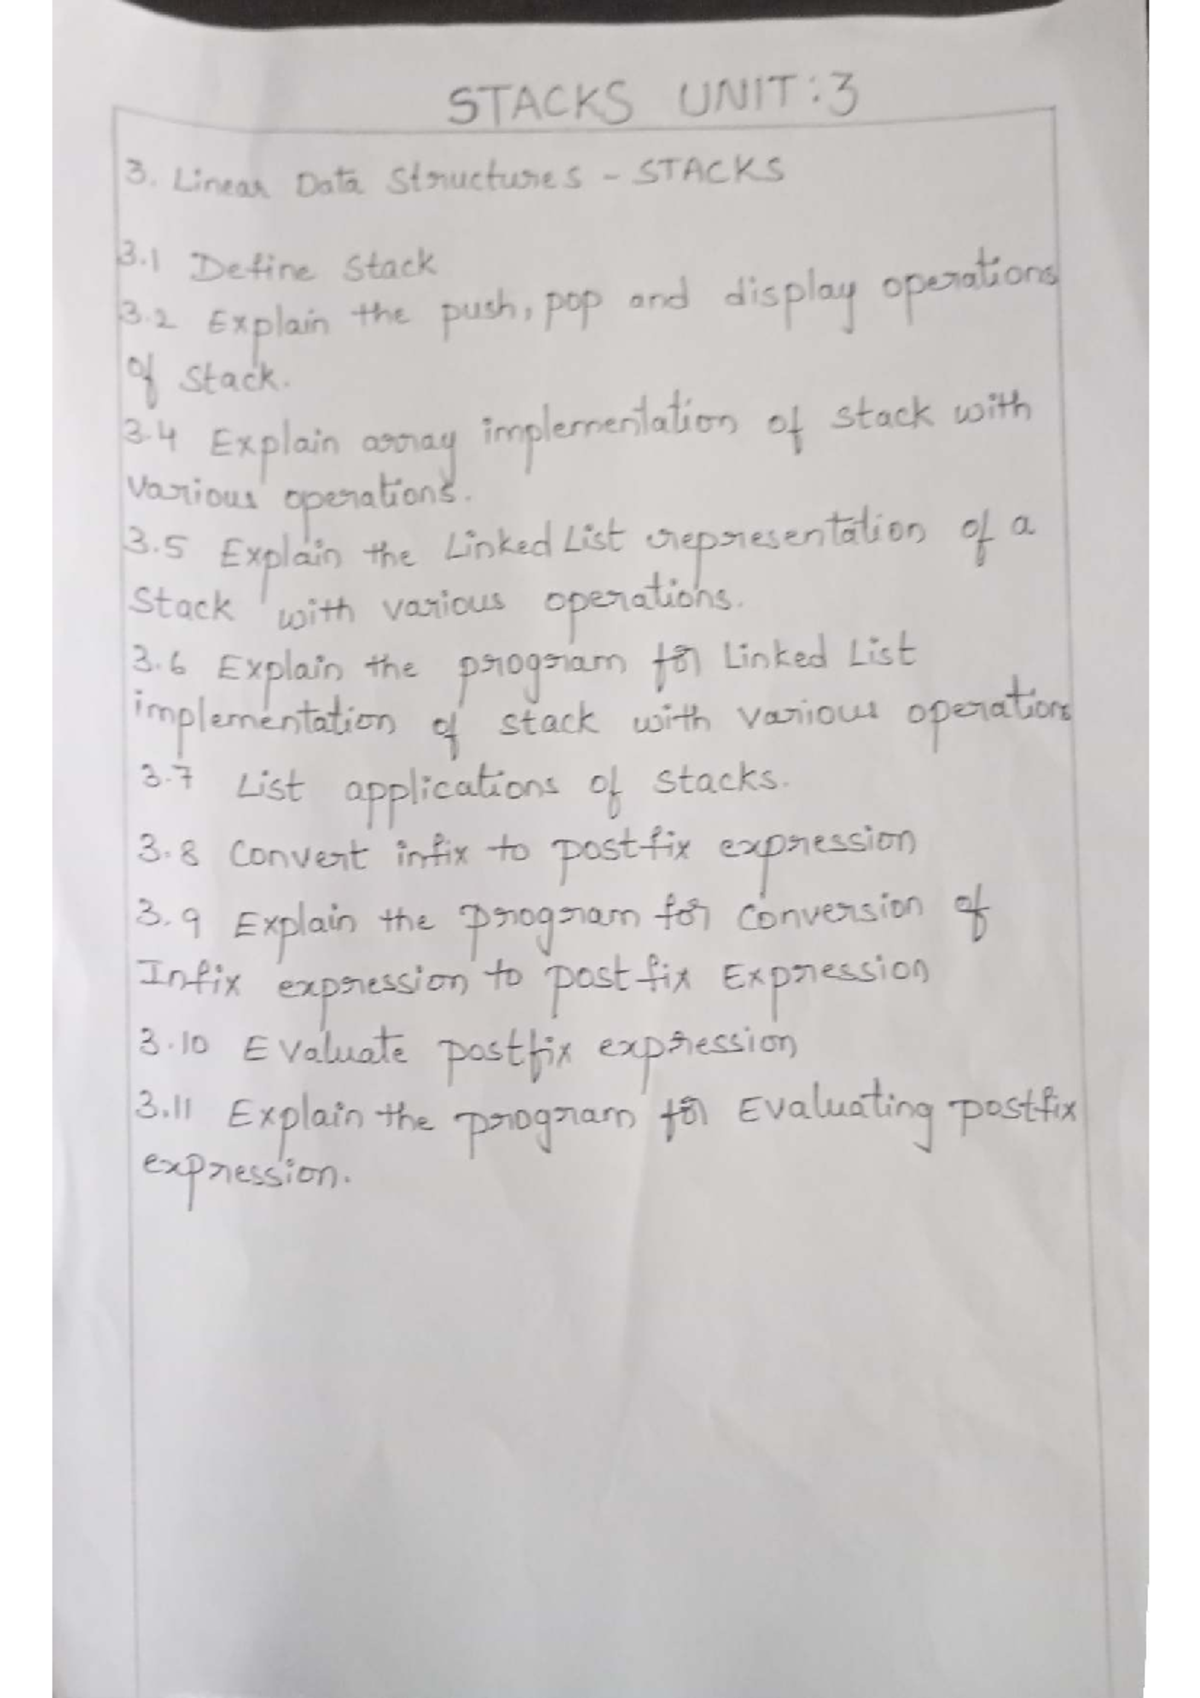 STACKS UNIT:3
3. Linear Data Structures - STACKS
3.1 Define Stack
3.2 Explain the push, pop and display operations
of Stack.
3.4 Explain array implementation of stack with
Various operations.
3.5 Explain the Linked List representation of a
Stack with various operations.
3.6 Explain the program for Linked List
implementation of stack with various operations
3.7 List applications of stacks.
3.8 Convert infix to postfix expression
3.9 Explain the program for Conversion of
Infix expression to postfix Expression
3.10 Evaluate postfix expression
3.11 Explain the program for Evaluating postfix
expression.